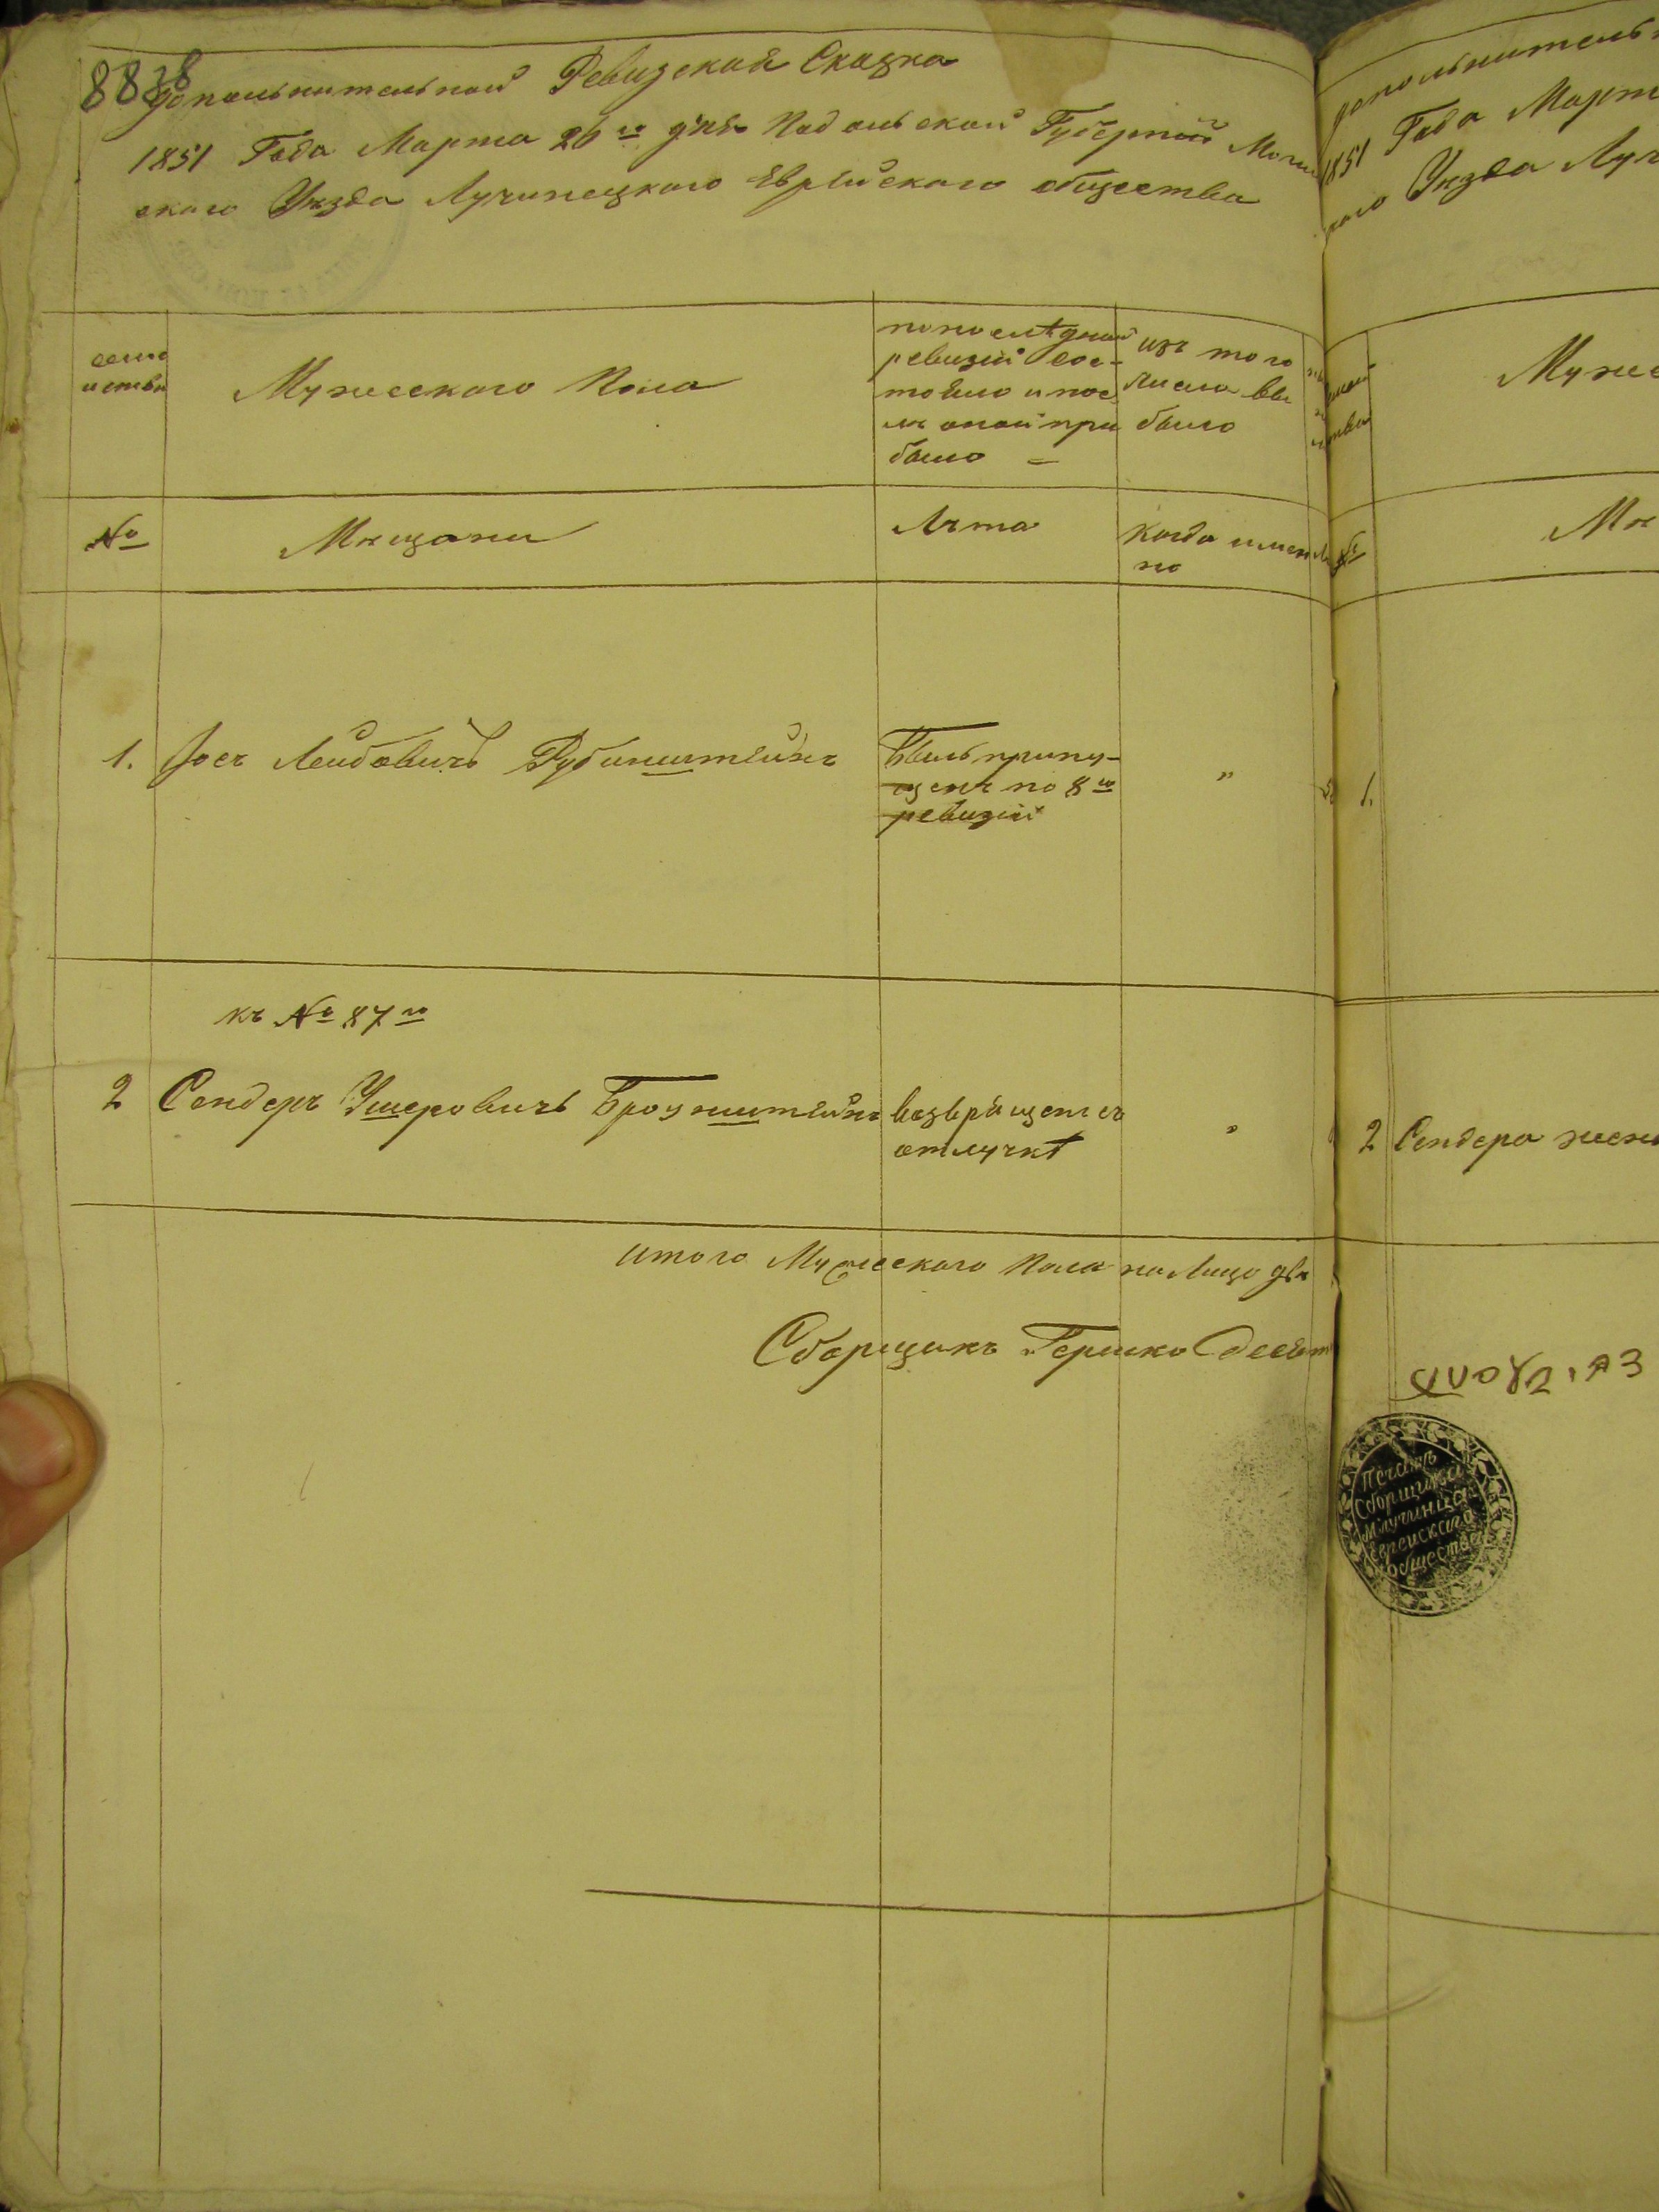 88
дополнительной Ревизской Сказка
1851 Года Марта 26го дня Подольской Губернии Моги
ского Уѣзда Лучинецкого Еврейского общества
семе
йства
Мужеского Пола
по послѣдней
ревизии сос-
тояло и пос
лѣ оной при
было =
изъ того
числа вы
было
№
Мѣщани
Лѣта
когда имен
но
1.
Лейбовичъ Рубинштейнъ
Былъ пропу-
щенъ по 8й
ревизии
"
къ № 87го
2
Сендеръ Ушеровичъ Бронштейнъ
возвращен съ
отлучкѣ
"
итого Мужеского Пола на Лицо два
Сборщикъ Гершко
дополнительн
1851 Года Март
кого Уѣзда Луч
Муже
№
Мѣ
1.
2
Сендера жен
Печать
Сборщика
М. Лучинца
еврейского
общества